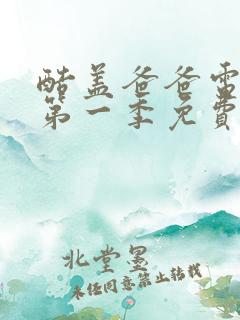 酷盖爸爸雷
第一季免費
北堂墨
未经同意禁止转载